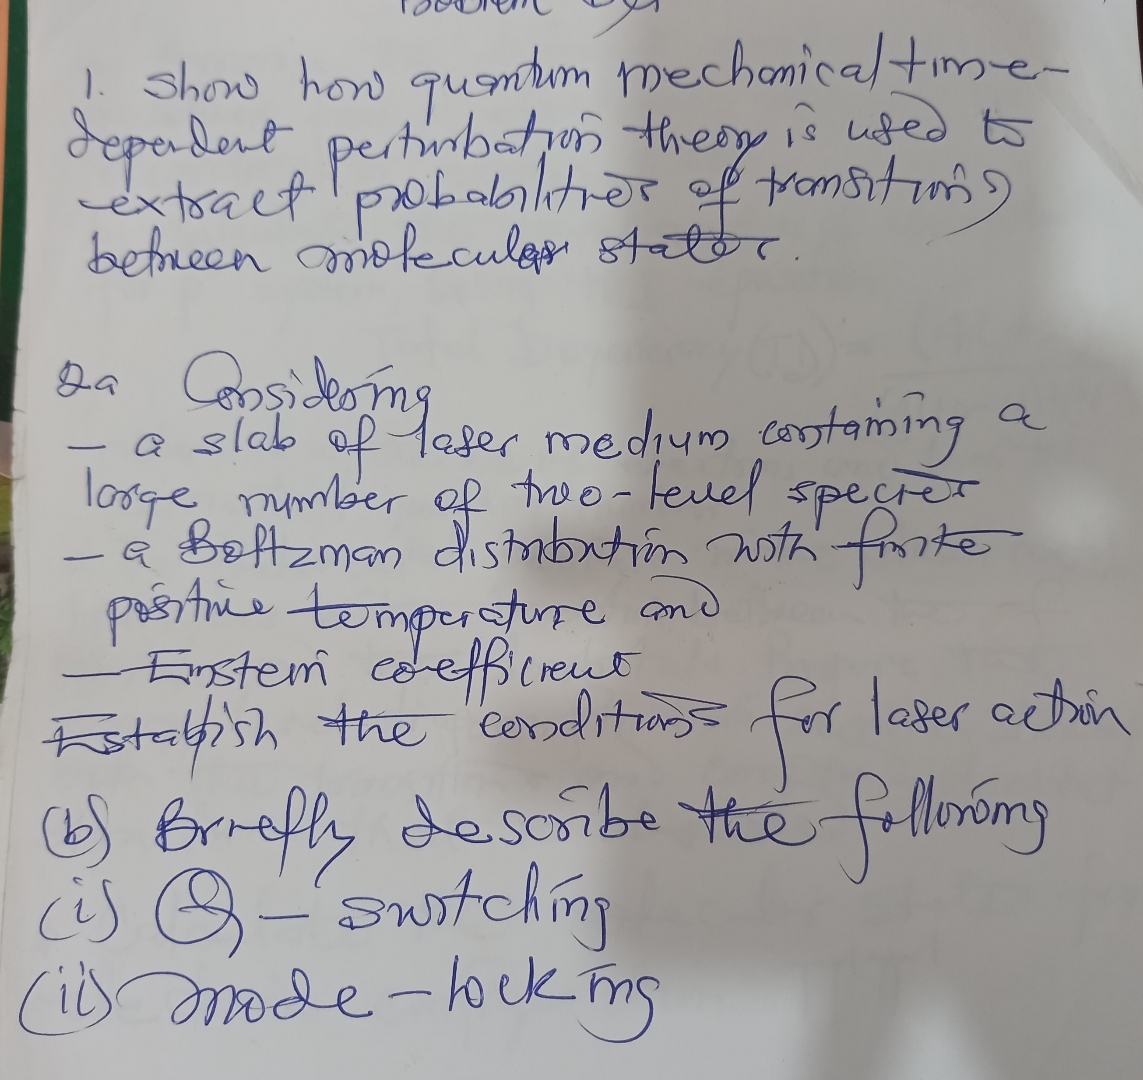 Problem Set
1. Show how quantum mechanical time-
dependent perturbation theory is used to
extract probabilities of transitions
between molecular states.
2a Considering
- a slab of laser medium containing a
large number of two-level species
- a Boltzman distribution with finite
positive temperature and
- Einstein coefficient
Establish the conditions for laser action
(b) Briefly describe the following
(i) Q-switching
(ii) mode-locking